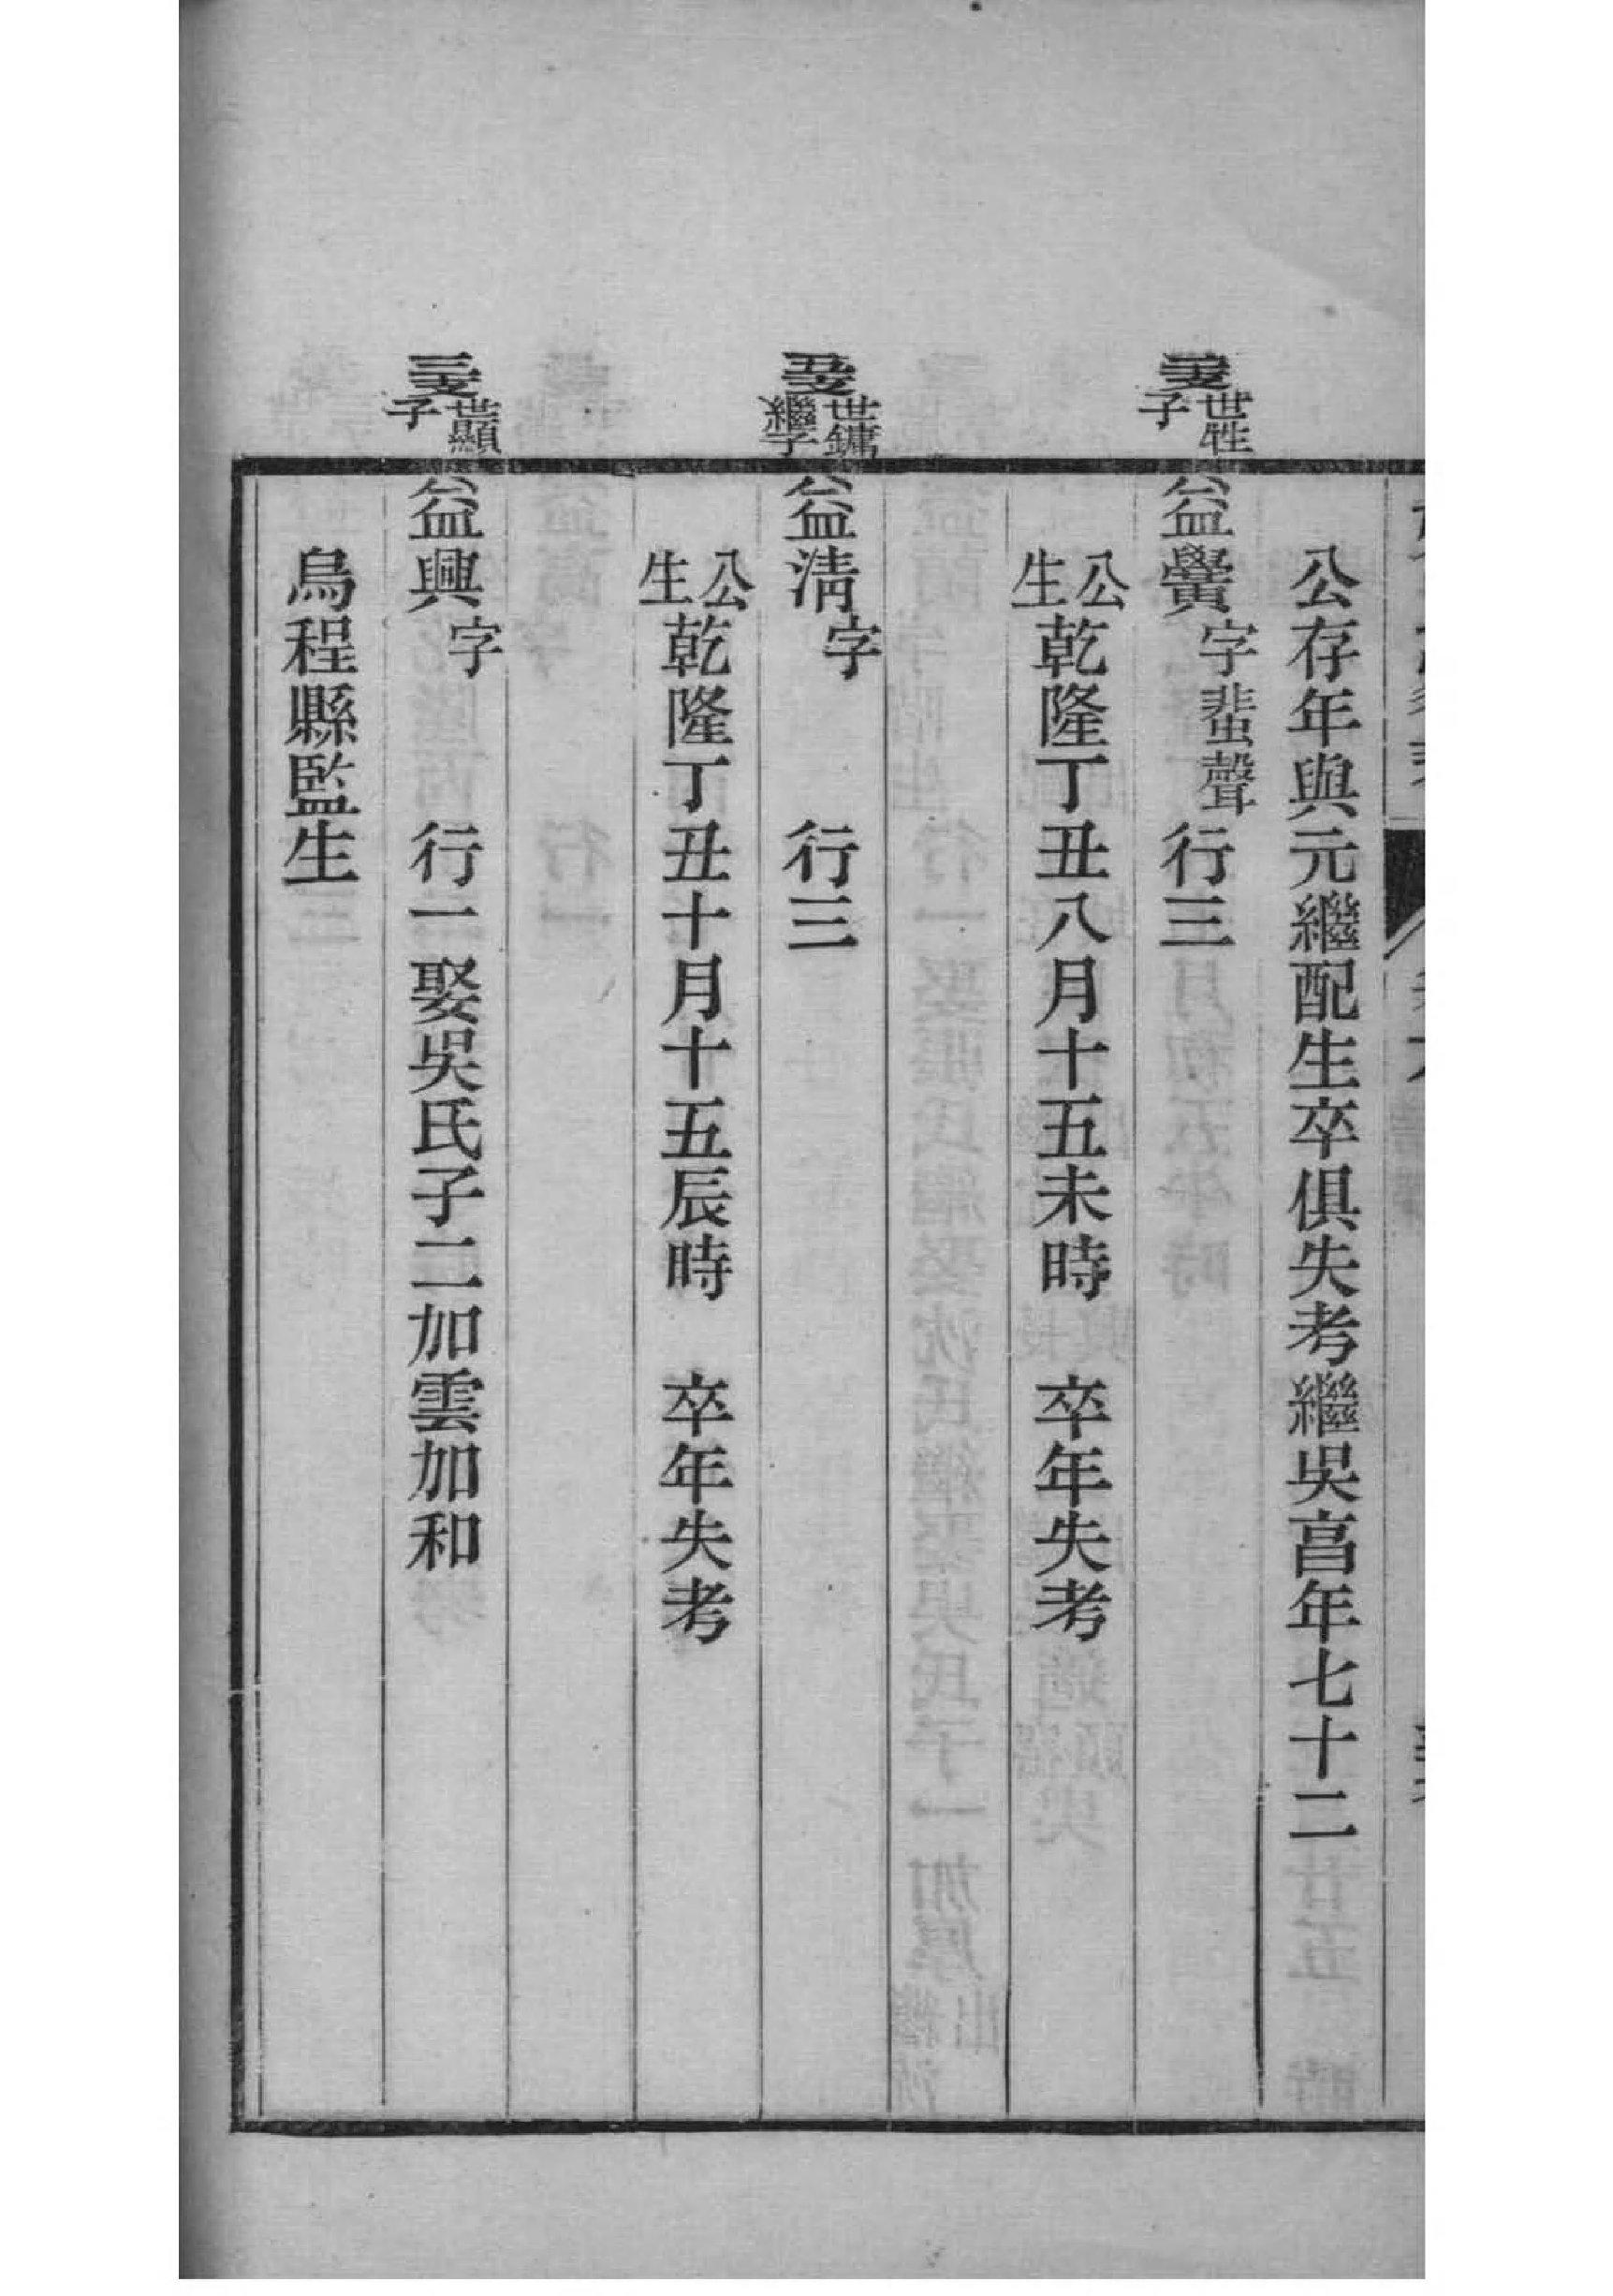 公存年與元繼配生卒俱失考繼吳亯年七十二
世牲子
益黌字蜚聲行三
公生乾隆丁丑八月十五未時　卒年失考
世鏞繼子
益淸字　行三
公生乾隆丁丑十月十五辰時　卒年失考
世顯子
益興字　行二娶吳氏子二加雲加和
烏程縣監生